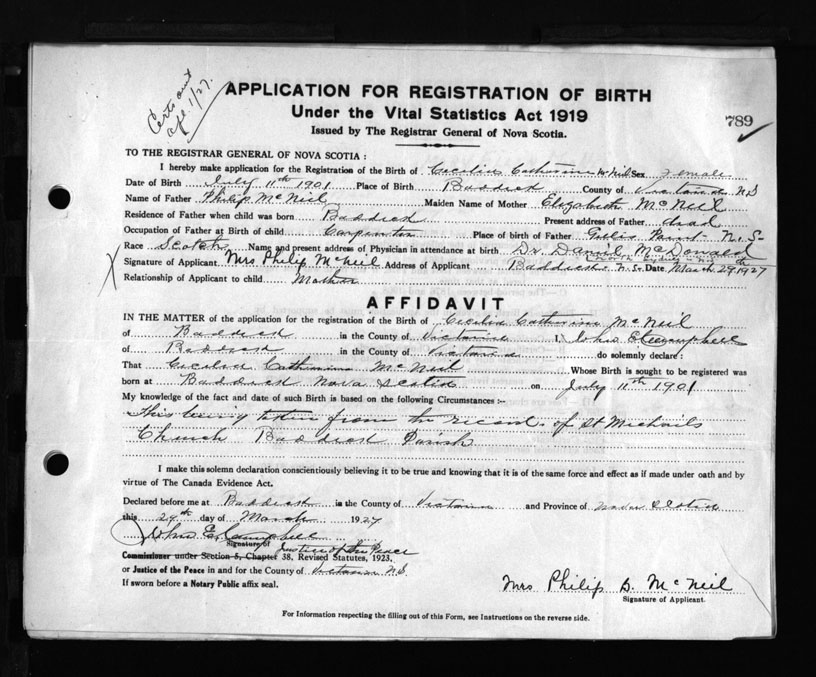 Certs sent
Apl 1/27.
APPLICATION FOR REGISTRATION OF BIRTH
Under the Vital Statistics Act 1919
789
Issued by The Registrar General of Nova Scotia.
TO THE REGISTRAR GENERAL OF NOVA SCOTIA :
I hereby make application for the Registration of the Birth of Cecilia Catherine McNeil Sex Female
Date of Birth July 11th 1901 Place of Birth Baddeck County of Victoria N.S
Name of Father Philip McNeil Maiden Name of Mother Elizabeth McNeil
Residence of Father when child was born Baddeck Present address of Father dead
Occupation of Father at Birth of child Carpenter Place of birth of Father Gillis Point N.S-
Race Scotch Name and present address of Physician in attendance at birth Dr Daniel McDonald
Signature of Applicant Mrs Philip McNeil Address of Applicant Baddeck N.S- Date March 29th 1927
Relationship of Applicant to child Mother
AFFIDAVIT
IN THE MATTER of the application for the registration of the Birth of Cecilia Catherine McNeil
of Baddeck in the County of Victoria I, John E Campbell
of Baddeck in the County of Victoria do solemnly declare :
That Cecilia Catherine McNeil Whose Birth is sought to be registered was
born at Baddeck Nova Scotia on July 11th 1901
My knowledge of the fact and date of such Birth is based on the following Circumstances :-
This being taken from the records of St Michaels
Church Baddeck Parish
I make this solemn declaration conscientiously believing it to be true and knowing that it is of the same force and effect as if made under oath and by
virtue of The Canada Evidence Act.
Declared before me at Baddeck in the County of Victoria and Province of Nova Scotia
this 29th day of March 1927
John E. Campbell
Signature of Justice of the Peace
Commissioner under Section 5, Chapter 38, Revised Statutes, 1923,
or Justice of the Peace in and for the County of Victoria N.S
If sworn before a Notary Public affix seal.
Mrs Philip B. McNeil
Signature of Applicant.
For Information respecting the filling out of this Form, see Instructions on the reverse side.